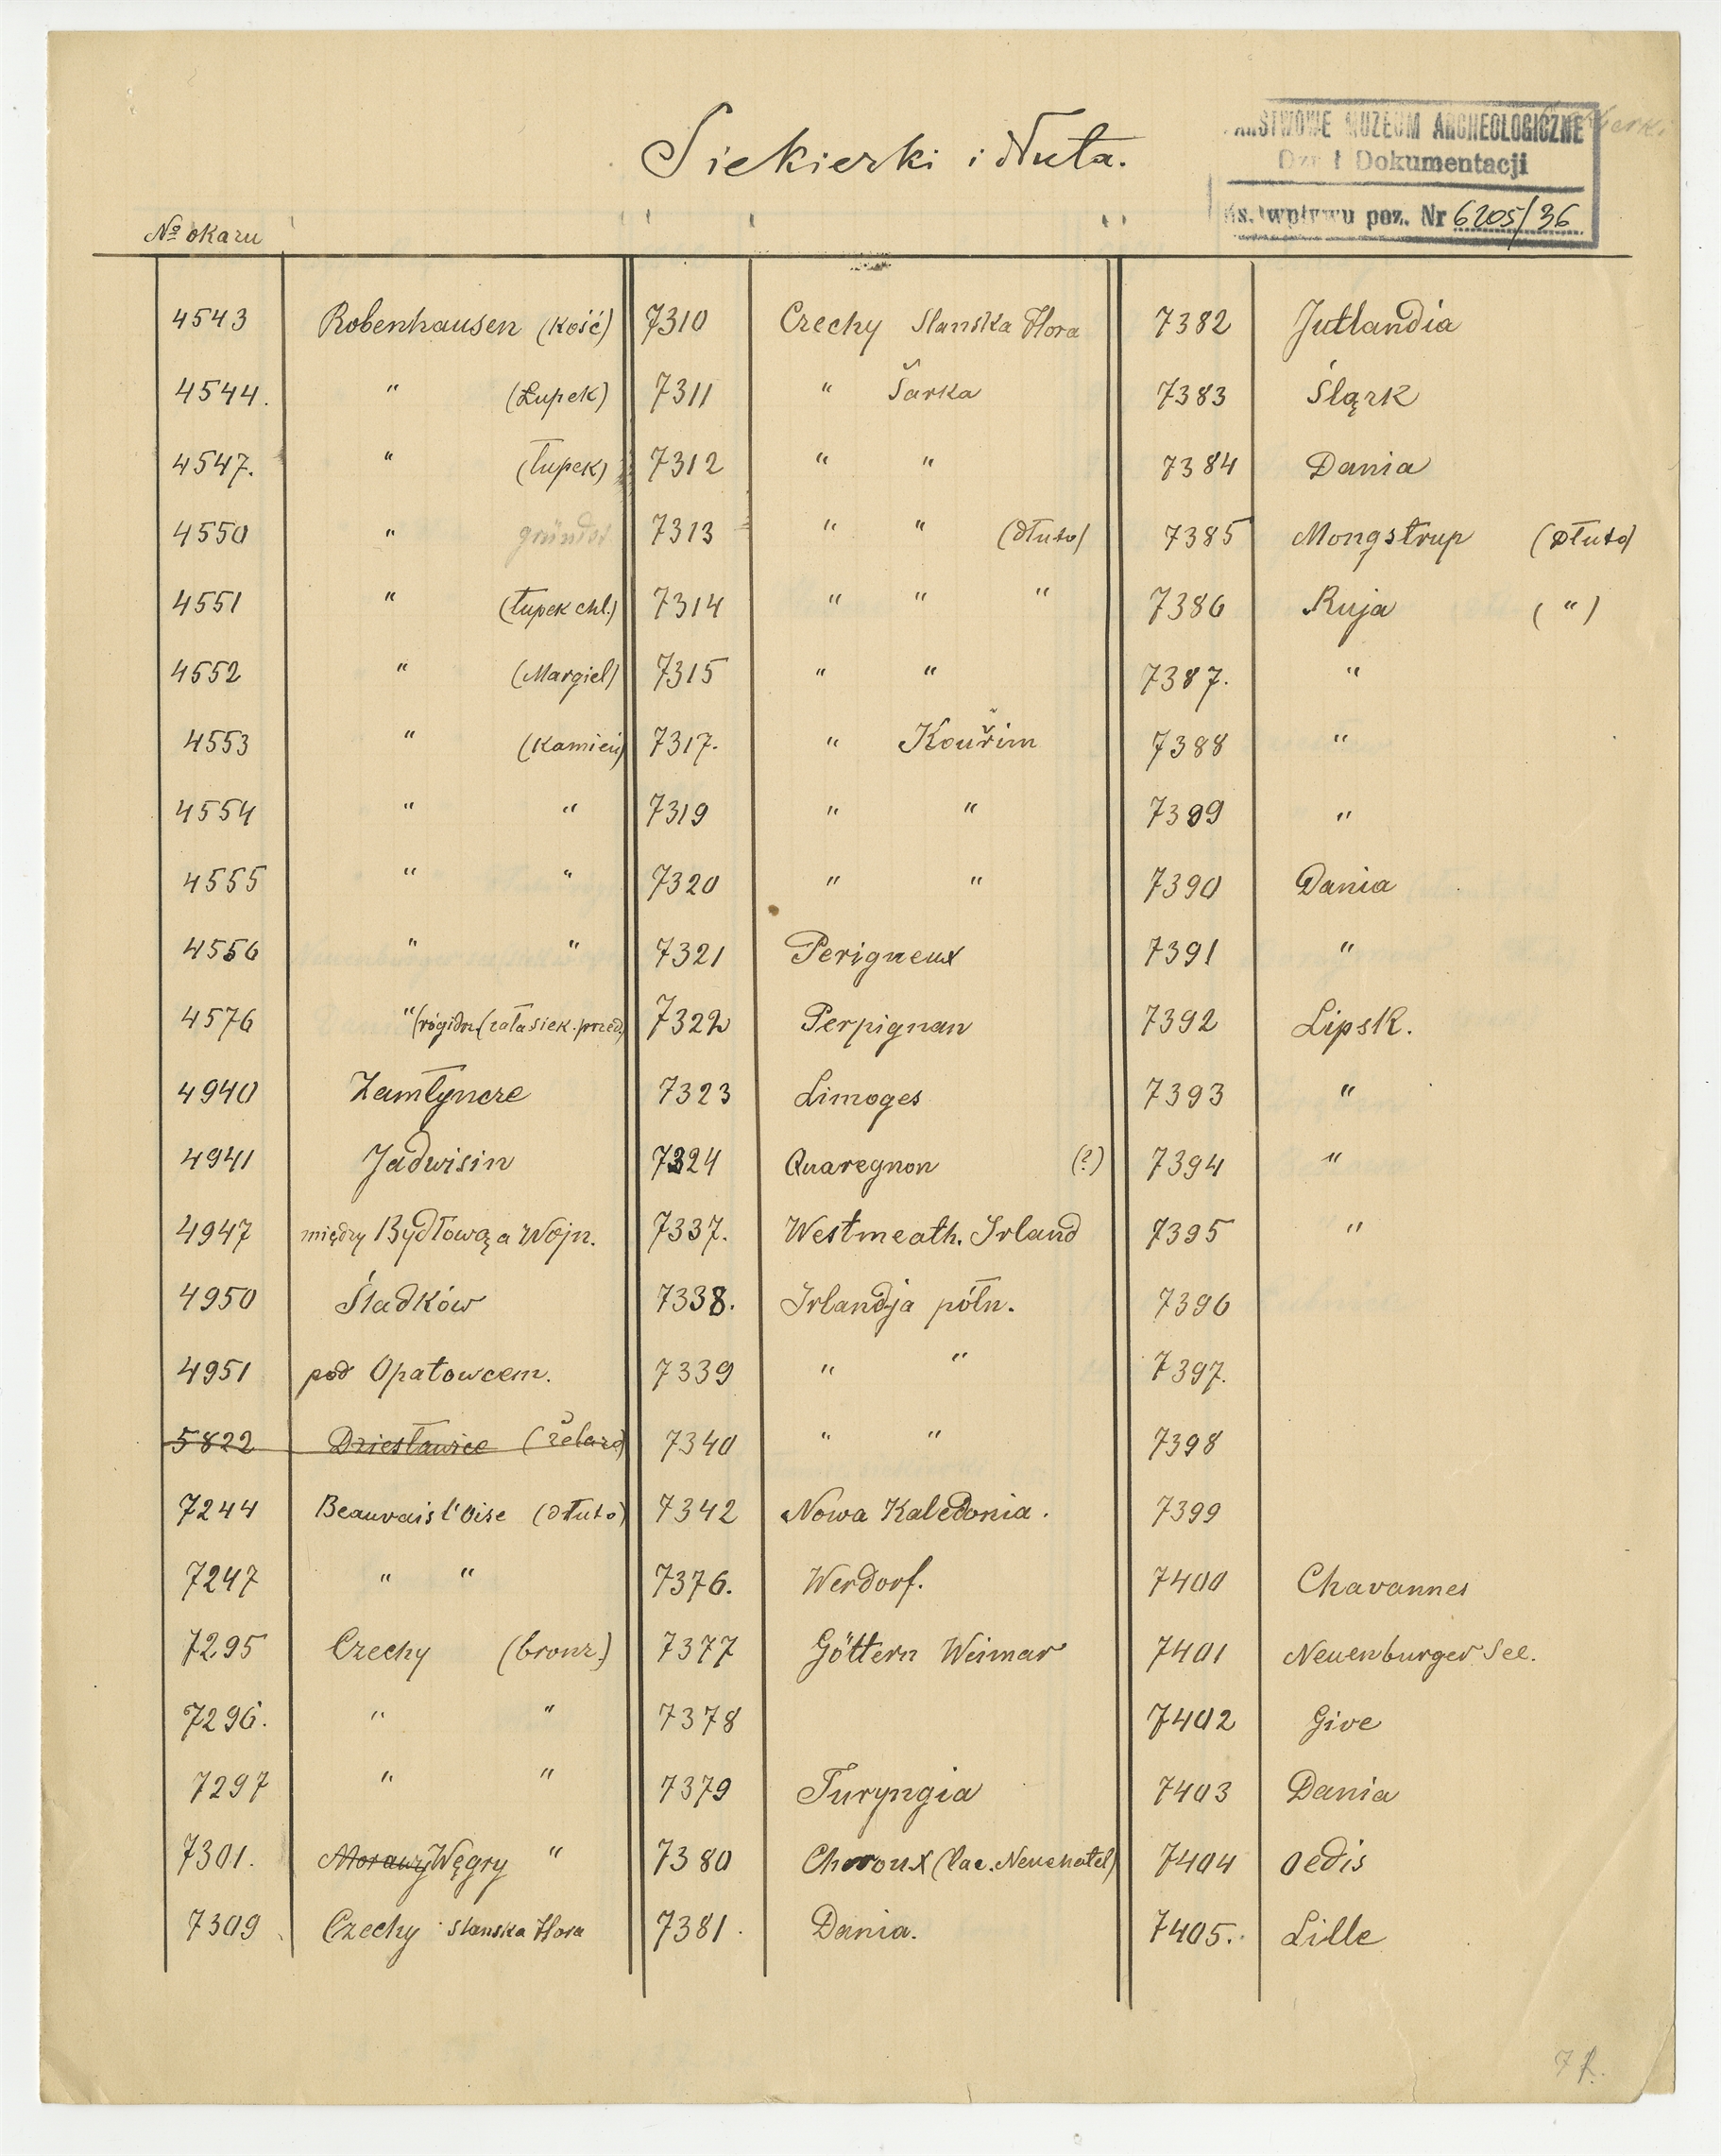 Siekierki i dłuta.
PAŃSTWOWE MUZEUM ARCHEOLOGICZNE
Dział Dokumentacji
Ks. wpływu poz. Nr 6205/36
№ okazu
4543 Robenhausen (Kość) 7310 Czechy Slanska Hora 7382 Jutlandia
4544. " (Łupek) 7311 " Šarka 7383 Ślązk
4547. " (łupek) 7312 " " 7384 Dania
4550 " 7313 " " (dłuto) 7385 Mongstrup (Dłuto)
4551 " (łupek chl.) 7314 " " " 7386 Ruja ( " )
4552 " (Margiel) 7315 " " 7387. "
4553 " (Kamień) 7317. " Kouřim 7388 "
4554 " " 7319 " " 7389 "
4555 " " 7320 " " 7390 Dania
4556 " " 7321 Perigneux 7391 "
4576 " 7322 Perpignan 7392 Lipsk.
4940 Zamłyncze 7323 Limoges 7393 "
4941 Jadwisin 7324 Quaregnon (?) 7394 "
4947 między Bydłową a Wojn. 7337. Westmeath. Irland 7395 "
4950 Śladków 7338. Irlandja półn. 7396
4951 pod Opatowcem. 7339 " " 7397.
5822 Dziesławice (żelazo) 7340 " " 7398
7244 Beauvais l'Oise (dłuto) 7342 Nowa Kaledonia. 7399
7247 " " 7376. Werdorf. 7400 Chavannes
7295 Czechy (bronz.) 7377 Göttern Weimar 7401 Neuenburger See.
7296. " " 7378 7402 Give
7297 " " 7379 Turyngia 7403 Dania
7301. Morawy Węgry " 7380 (lac. Neuchatel) 7404 Oedis
7309 Czechy Slanska Hora 7381. Dania. 7405. Lille